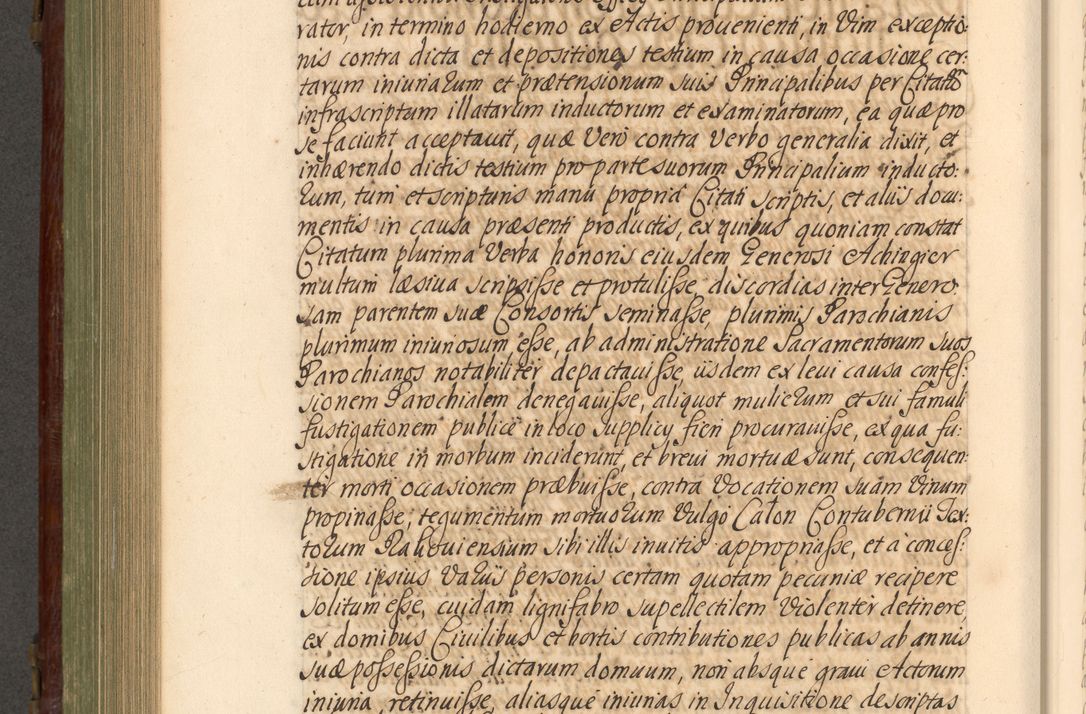 rator, in termino hodierno ex Actis proueniẽnti, in Vim exceptio-
nis contra dicta et depositiones testium in causa occasione cer:
tarum iniuriarum et prætensionum suis Principalibus per Citatũ
infrascriptum illatarum inductorum et examinatorum, ea quæ pro
se faciunt acceptauit, quæ Verò contra Verbo generalia dixit, et
inhærendo dictis testium pro parte suorum Principalium inducto:
rum, tum et scripturis manu propria Citati scriptis, et aliis docu:
mentis in causa præsenti productis, ex quibus quoniam constat
Citatum plurima Verba honoris eiusdem Generosi Achingier
multum læsiua scripsisse et protulisse, discordias inter Genero
sam parentem suæ Consortis seminasse, plurimis Parochianis
plurimum iniuriosum esse, ab administratione Sacramentorum suos
Parochianos notabiliter depactauisse, iisdem ex leui causa confes:
sionem Parochialem denegauisse, aliquot mulierum et sui famuli
fustigationem publicè in loco supplicy fieri procurauisse, ex qua fu:
stigatione in morbum inciderunt, et breui mortuæ sunt, consequen:
ter morti occasionem præbuisse, contra Vocationem suam Vinum
propinasse, tegumentum mortuorum Vulgò Całon Contubernii Tex:
torum sibi illis inuitis appropriasse, et à conces:
sione ipsius Variis personis certam quotam pecuniæ recipere
solitum esse, cuidam lignifabro supellectilem Violenter detinere,
ex domibus Ciuilibus et hortis contributiones publicas ab annis
suæ possessionis dictarum domuum, non absque graui Actorum
iniuria retinuisse, aliasque iniurias in Inquisitione descriptas